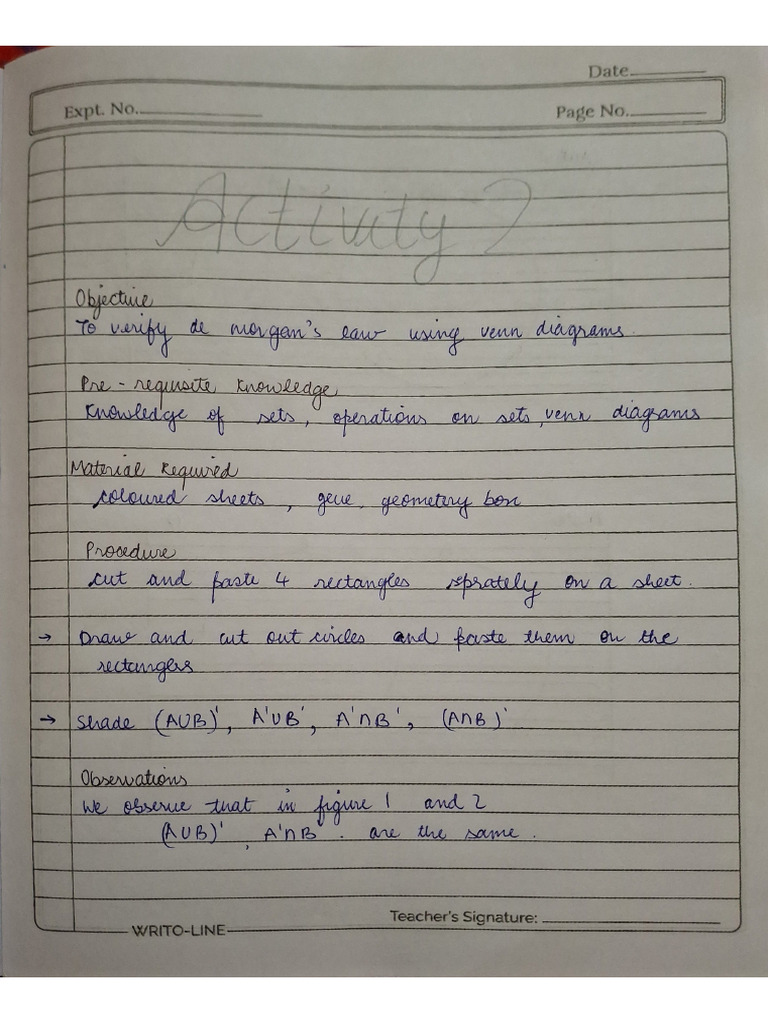 Date
Expt. No.
Page No.
Activity 2
Objective
To verify de morgan's law using venn diagrams.
Pre-requisite Knowledge
Knowledge of sets, operations on sets, venn diagrams
Material Required
coloured sheets, glue, geometery box
Procedure
cut and paste 4 rectangles seprately on a sheet.
→ Draw and cut out circles and paste them on the
rectangles
→ Shade (A∪B)', A'∪B', A'∩B', (A∩B)'
Observations
We observe that in figure 1 and 2
(A∪B)', A'∩B'. are the same.
Teacher's Signature:
WRITO-LINE